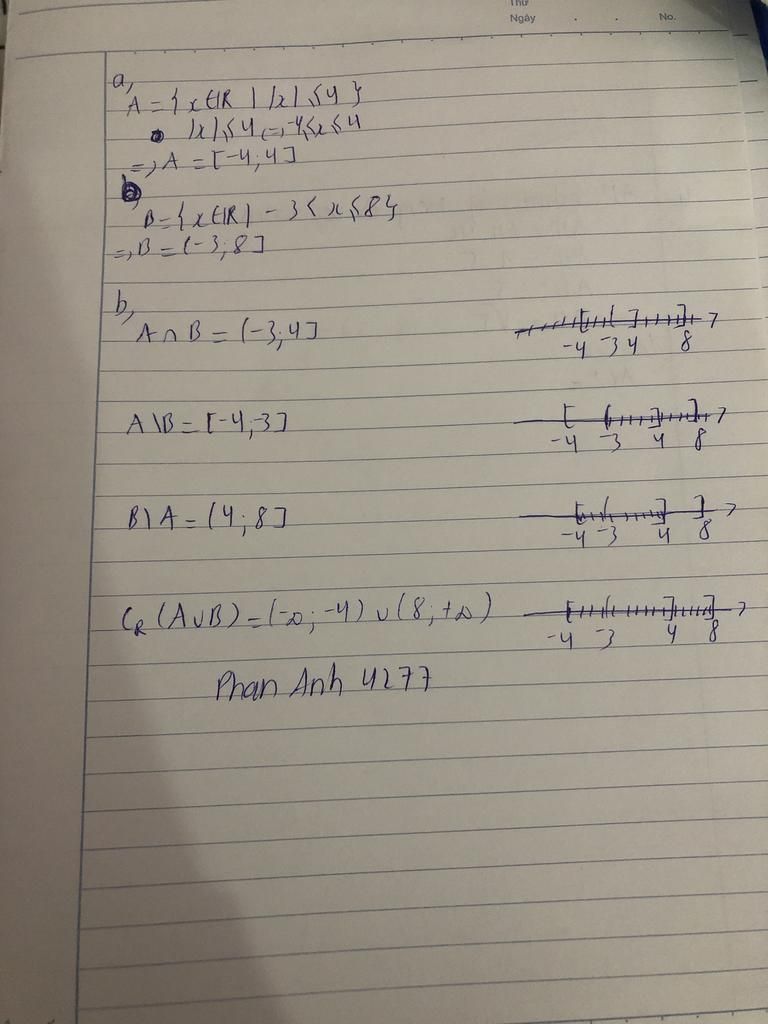 Thứ
Ngày . . No.
a,
A = { x ∈ IR | |x| ≤ 4 }
|x| ≤ 4 => -4 ≤ x ≤ 4
=> A = [-4; 4]
B = { x ∈ IR | -3 < x ≤ 8 }
=> B = (-3; 8]
b,
A ∩ B = (-3; 4]
-4 -3 4 8
A \ B = [-4; -3]
-4 -3 4 8
B \ A = (4; 8]
-4 -3 4 8
C_R (A ∪ B) = (-∞; -4) ∪ (8; +∞)
-4 -3 4 8
Phan Anh 4277